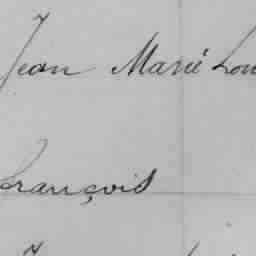 Jean Marie Lou
François